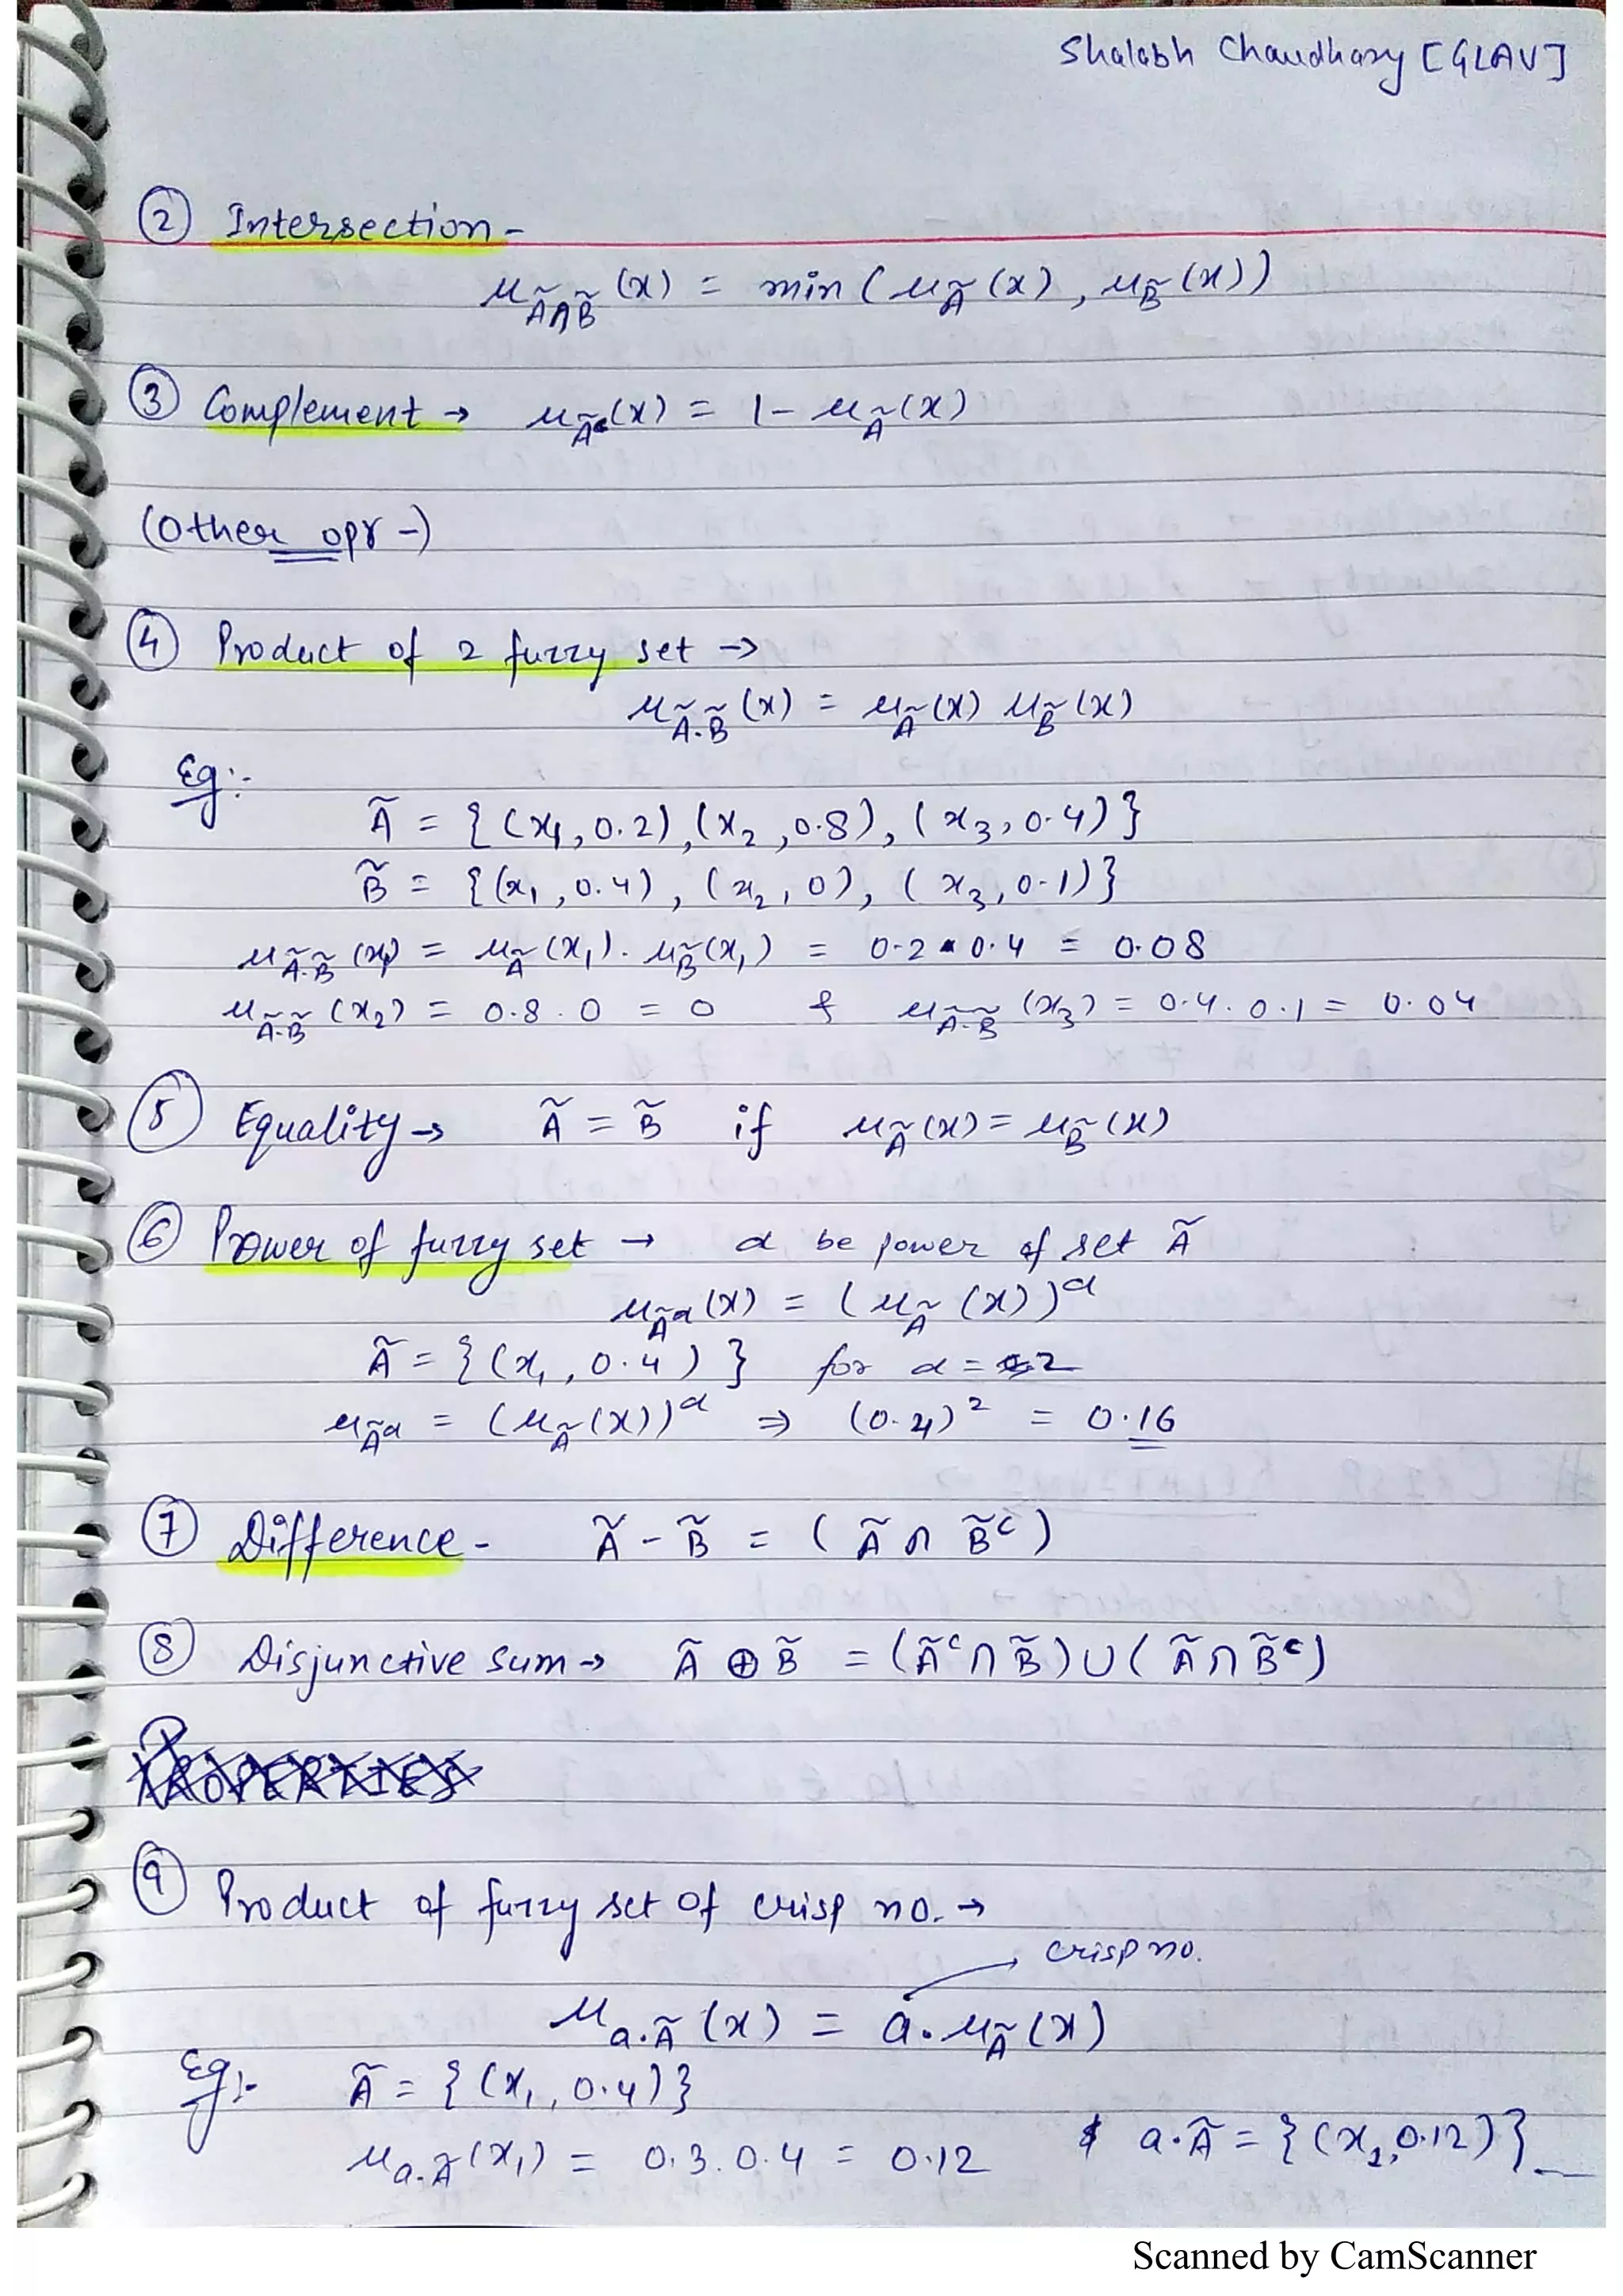 Shalabh Chaudhary [GLAU]
② Intersection -
μ_{Ã∩B̃}(x) = min(μ_Ã(x), μ_B̃(x))
③ Complement → μ_{Ãᶜ}(x) = 1 - μ_Ã(x)
(Other opr -)
④ Product of 2 fuzzy set →
μ_{Ã.B̃}(x) = μ_Ã(x) μ_B̃(x)
Eg:-
Ã = {(x₁, 0.2), (x₂, 0.8), (x₃, 0.4)}
B̃ = {(x₁, 0.4), (x₂, 0), (x₃, 0.1)}
μ_{Ã.B̃}(x₁) = μ_Ã(x₁). μ_B̃(x₁) = 0.2 . 0.4 = 0.08
μ_{Ã.B̃}(x₂) = 0.8 . 0 = 0 & μ_{Ã.B̃}(x₃) = 0.4 . 0.1 = 0.04
⑤ Equality → Ã = B̃ if μ_Ã(x) = μ_B̃(x)
⑥ Power of fuzzy set → α be power of set Ã
μ_{Ã^α}(x) = (μ_Ã(x))^α
Ã = {(x₁, 0.4)} for α = 2
μ_{Ã^α} = (μ_Ã(x))^α ⇒ (0.4)² = 0.16
⑦ Difference - Ã - B̃ = (Ã ∩ B̃ᶜ)
⑧ Disjunctive sum → Ã ⊕ B̃ = (Ãᶜ ∩ B̃) ∪ (Ã ∩ B̃ᶜ)
PROPERTIES
⑨ Product of fuzzy set of crisp no. →
crisp no.
μ_{a.Ã}(x) = a. μ_Ã(x)
Eg:- Ã = {(x₁, 0.4)}
μ_{a.Ã}(x₁) = 0.3 . 0.4 = 0.12 & a.Ã = {(x₁, 0.12)}
Scanned by CamScanner